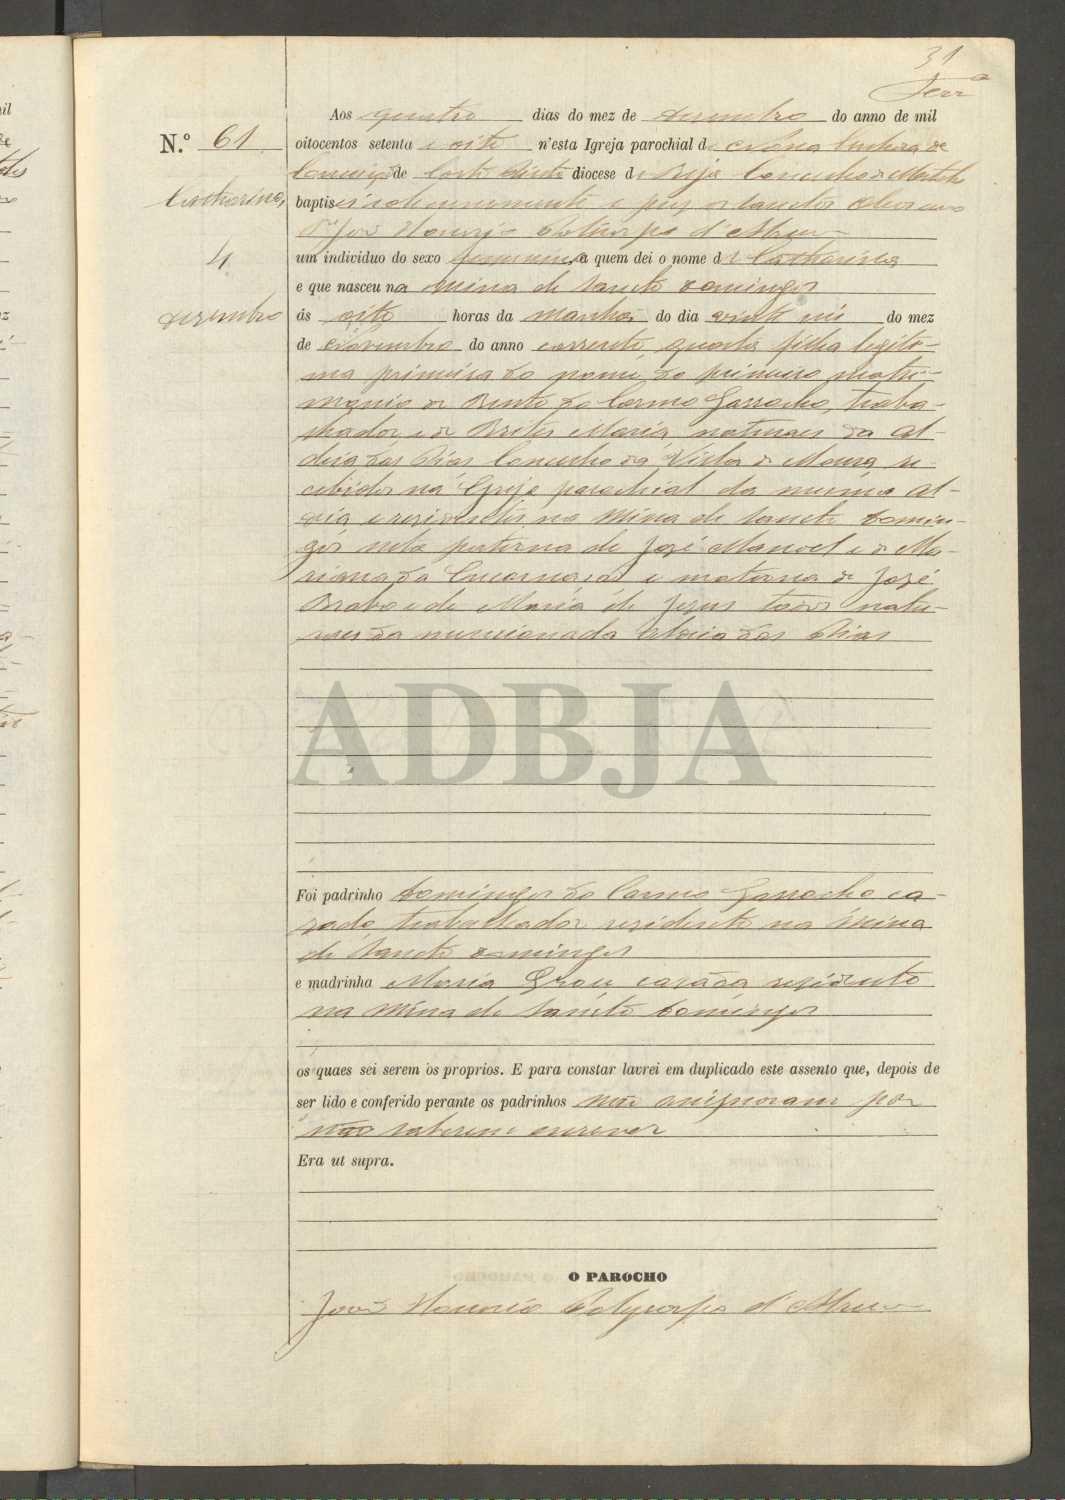 31
Ferrª
N.º 61
Catharina
4
dezembro
Aos quatro dias do mez de dezembro do anno de mil
oitocentos setenta e oito n'esta Igreja parochial de Nossa Senhora da
Conceição de Corte Pinto diocese de Beja Concelho de Mertola
baptisei solemnemente e puz os Sanctos Oleos eu
João Honorio Polycarpo d'
um individuo do sexo feminino a quem dei o nome de Catharina
e que nasceu na Mina de Sancto Domingos
ás oito horas da manhã do dia vinte seis do mez
de Novembro do anno corrente, quarta filha legiti-
ma primeira do nome do primeiro matri-
monio de Bento do Carmo Garrocho, traba-
lhador, e de Brites Maria naturaes da Al-
deia das Pias Concelho da Villa de Moura re-
cebidos na Igreja parochial da mesma Al-
deia e residentes na Mina de Sancto Domin-
gos neta paterna de José Manoel e de Ma-
rianna da Encarnação e materna de José
Brabo e de Maria de Jezus todos natu-
raes da mencionada Aldeia das Pias
ADBJA
Foi padrinho Domingos do Carmo Garrocho ca-
zado, trabalhador residente na Mina
de Sancto Domingos
e madrinha Maria cazada rezidente
na Mina de Sancto Domingos
os quaes sei serem os proprios. E para constar lavrei em duplicado este assento que, depois de
ser lido e conferido perante os padrinhos não assignaram por
não saberem escrever
Era ut supra.
O PAROCHO
João Honorio Polycarpo d'